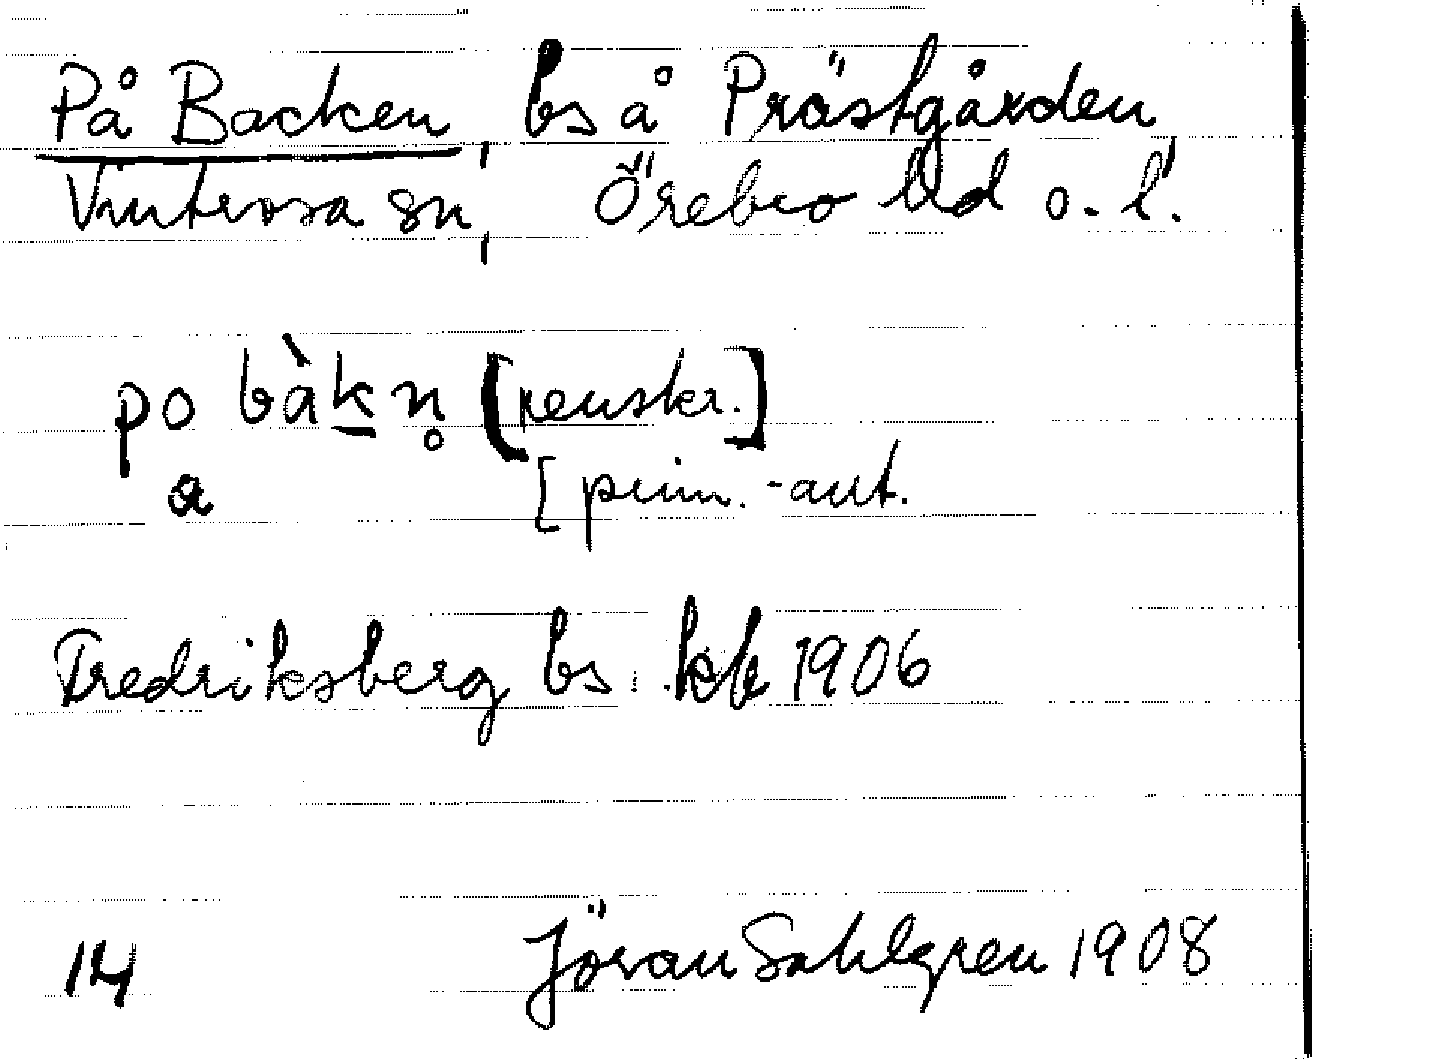 På Backen, bs å Prästgården
Vintrosa sn, Örebro hd o. l.
po bàkn̥ [renskr.]
a [prim.-ant.
Fredriksberg bs. kb 1906
14 Jöran Sahlgren 1908